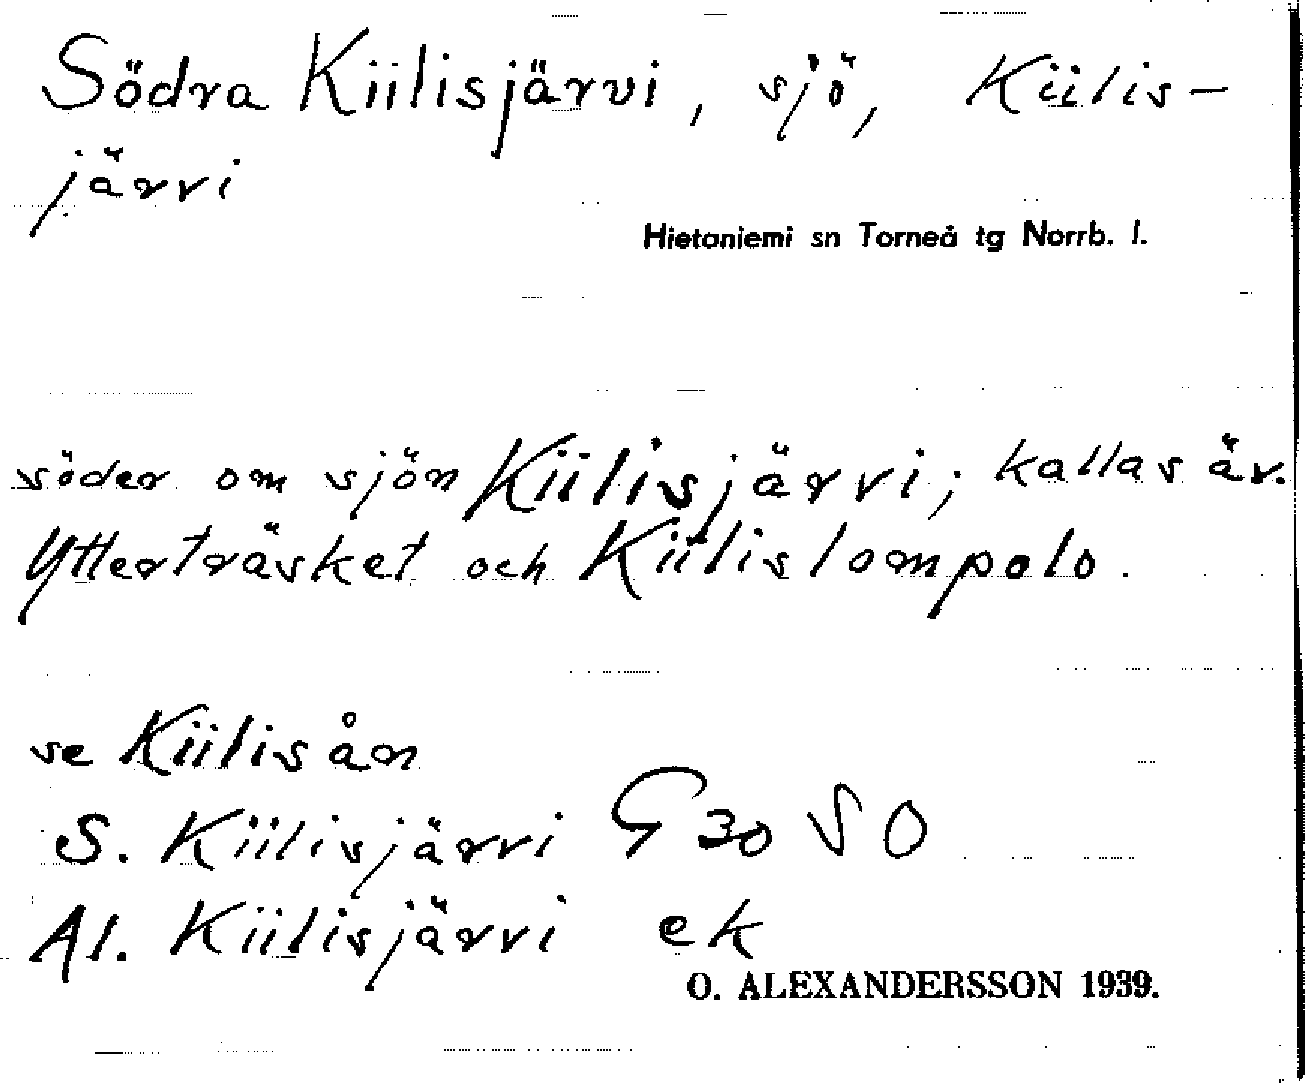 Södra Kiilisjärvi, sjö, Kiilis-
järvi
Hietaniemi sn Torneå tg Norrb. l.
söder om sjön Kiilisjärvi; kallas äv.
Ytterträsket och Kiilislompolo.
se Kiilisån
S. Kiilisjärvi G 30 SO
Al. Kiilisjärvi ek
O. ALEXANDERSSON 1939.